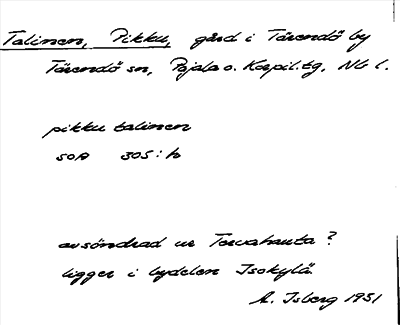 Talinen, Pikku, gård i Tärendö by
Tärendö sn, Pajala o. Korpil. tg, Nb l.
pikku talinen
SOA 305:h
avsöndrad ur Tervahauta?
ligger i bydelen Isokylä
A. Isberg 1951